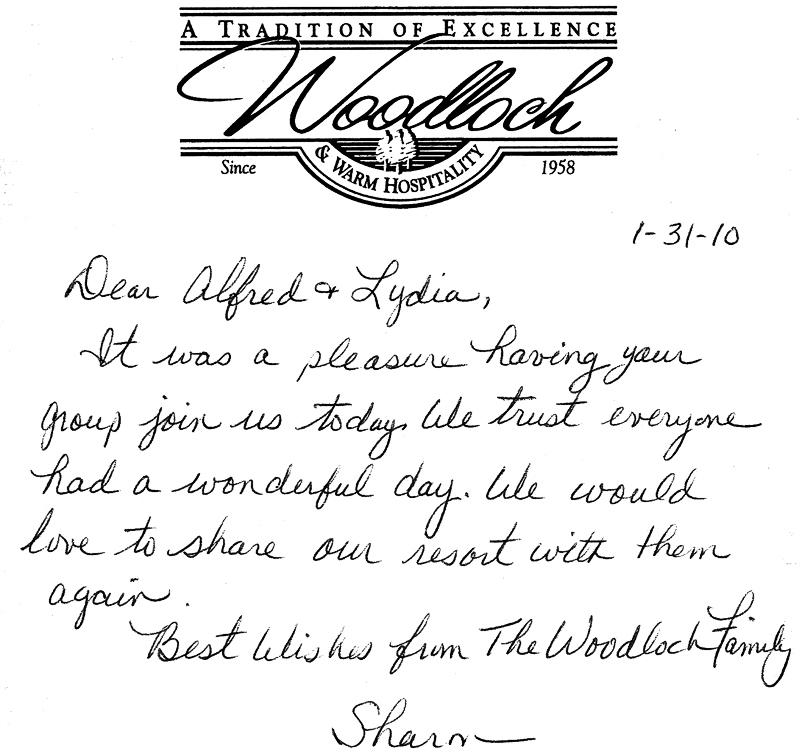 A TRADITION OF EXCELLENCE
Woodloch
& WARM HOSPITALITY
Since 1958
1-31-10
Dear Alfred & Lydia,
It was a pleasure having your
group join us today. We trust everyone
had a wonderful day. We would
love to share our resort with them
again.
Best Wishes from The Woodloch Family
Sharon